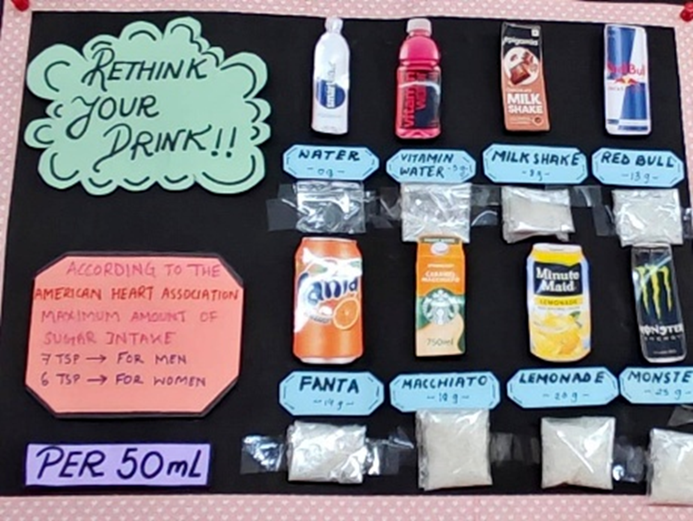 RETHINK
YOUR
DRINK!!
smart
vitamin
water
epigamia
MILK
SHAKE
Red Bull
WATER
- 0g -
VITAMIN
WATER
MILKSHAKE
RED BULL
ACCORDING TO THE
AMERICAN HEART ASSOCIATION
MAXIMUM AMOUNT OF
SUGAR INTAKE
7 TSP → FOR MEN
6 TSP → FOR WOMEN
Fanta
CARAMEL
MACCHIATO
750ml
Minute
Maid
LEMONADE
MONSTER
ENERGY
FANTA
MACCHIATO
LEMONADE
MONSTE
PER 50mL